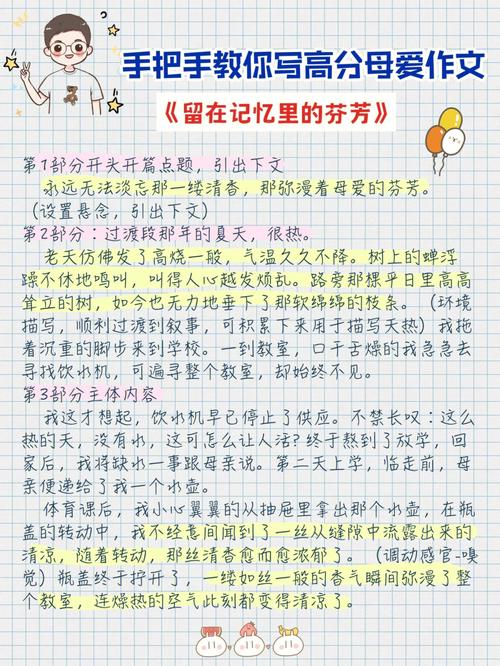 手把手教你写高分母爱作文
《留在记忆里的芬芳》
第1部分开头开篇点题，引出下文
永远无法淡忘那一缕清香，那弥漫着母爱的芬芳。
（设置悬念，引出下文）
第2部分：过渡段那年的夏天，很热。
老天仿佛发了高烧一般，气温久久不降。树上的蝉浮
躁不休地鸣叫，叫得人心越发烦乱。路旁那棵平日里高高
耸立的树，如今也无力地垂下了那软绵绵的枝条。（环境
描写，顺利过渡到叙事，可积累下来用于描写天热）我拖
着沉重的脚步来到学校。一到教室，口干舌燥的我急急去
寻找饮水机，可遍寻整个教室，却始终不见。
第3部分主体内容
我这才想起，饮水机早已停止了供应。不禁长叹：这么
热的天，没有水，这可怎么让人活？终于熬到了放学，回
家后，我将缺水一事跟母亲说。第二天上学，临走前，母
亲便递给了我一个水壶。
体育课后，我小心翼翼的从抽屉里拿出那个水壶，在瓶
盖的转动中，我不经意间闻到了一丝从缝隙中流露出来的
清凉，随着转动，那丝清香愈而愈浓郁了。（调动感官-嗅
觉）瓶盖终于拧开了，一缕如丝一般的香气瞬间弥漫了整
个教室，连燥热的空气此刻都变得清凉了。